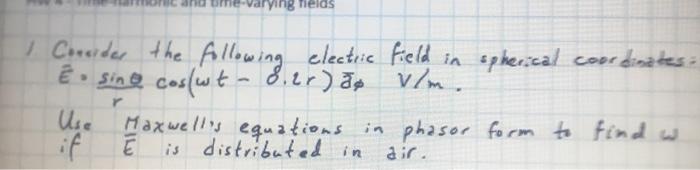 time-harmonic and time-varying fields
1 Consider the following electric field in spherical coordinates:
Ē = sinθ/r cos(wt - 0.2r) āφ V/m.
Use Maxwell's equations in phasor form to find w
if Ē is distributed in air.